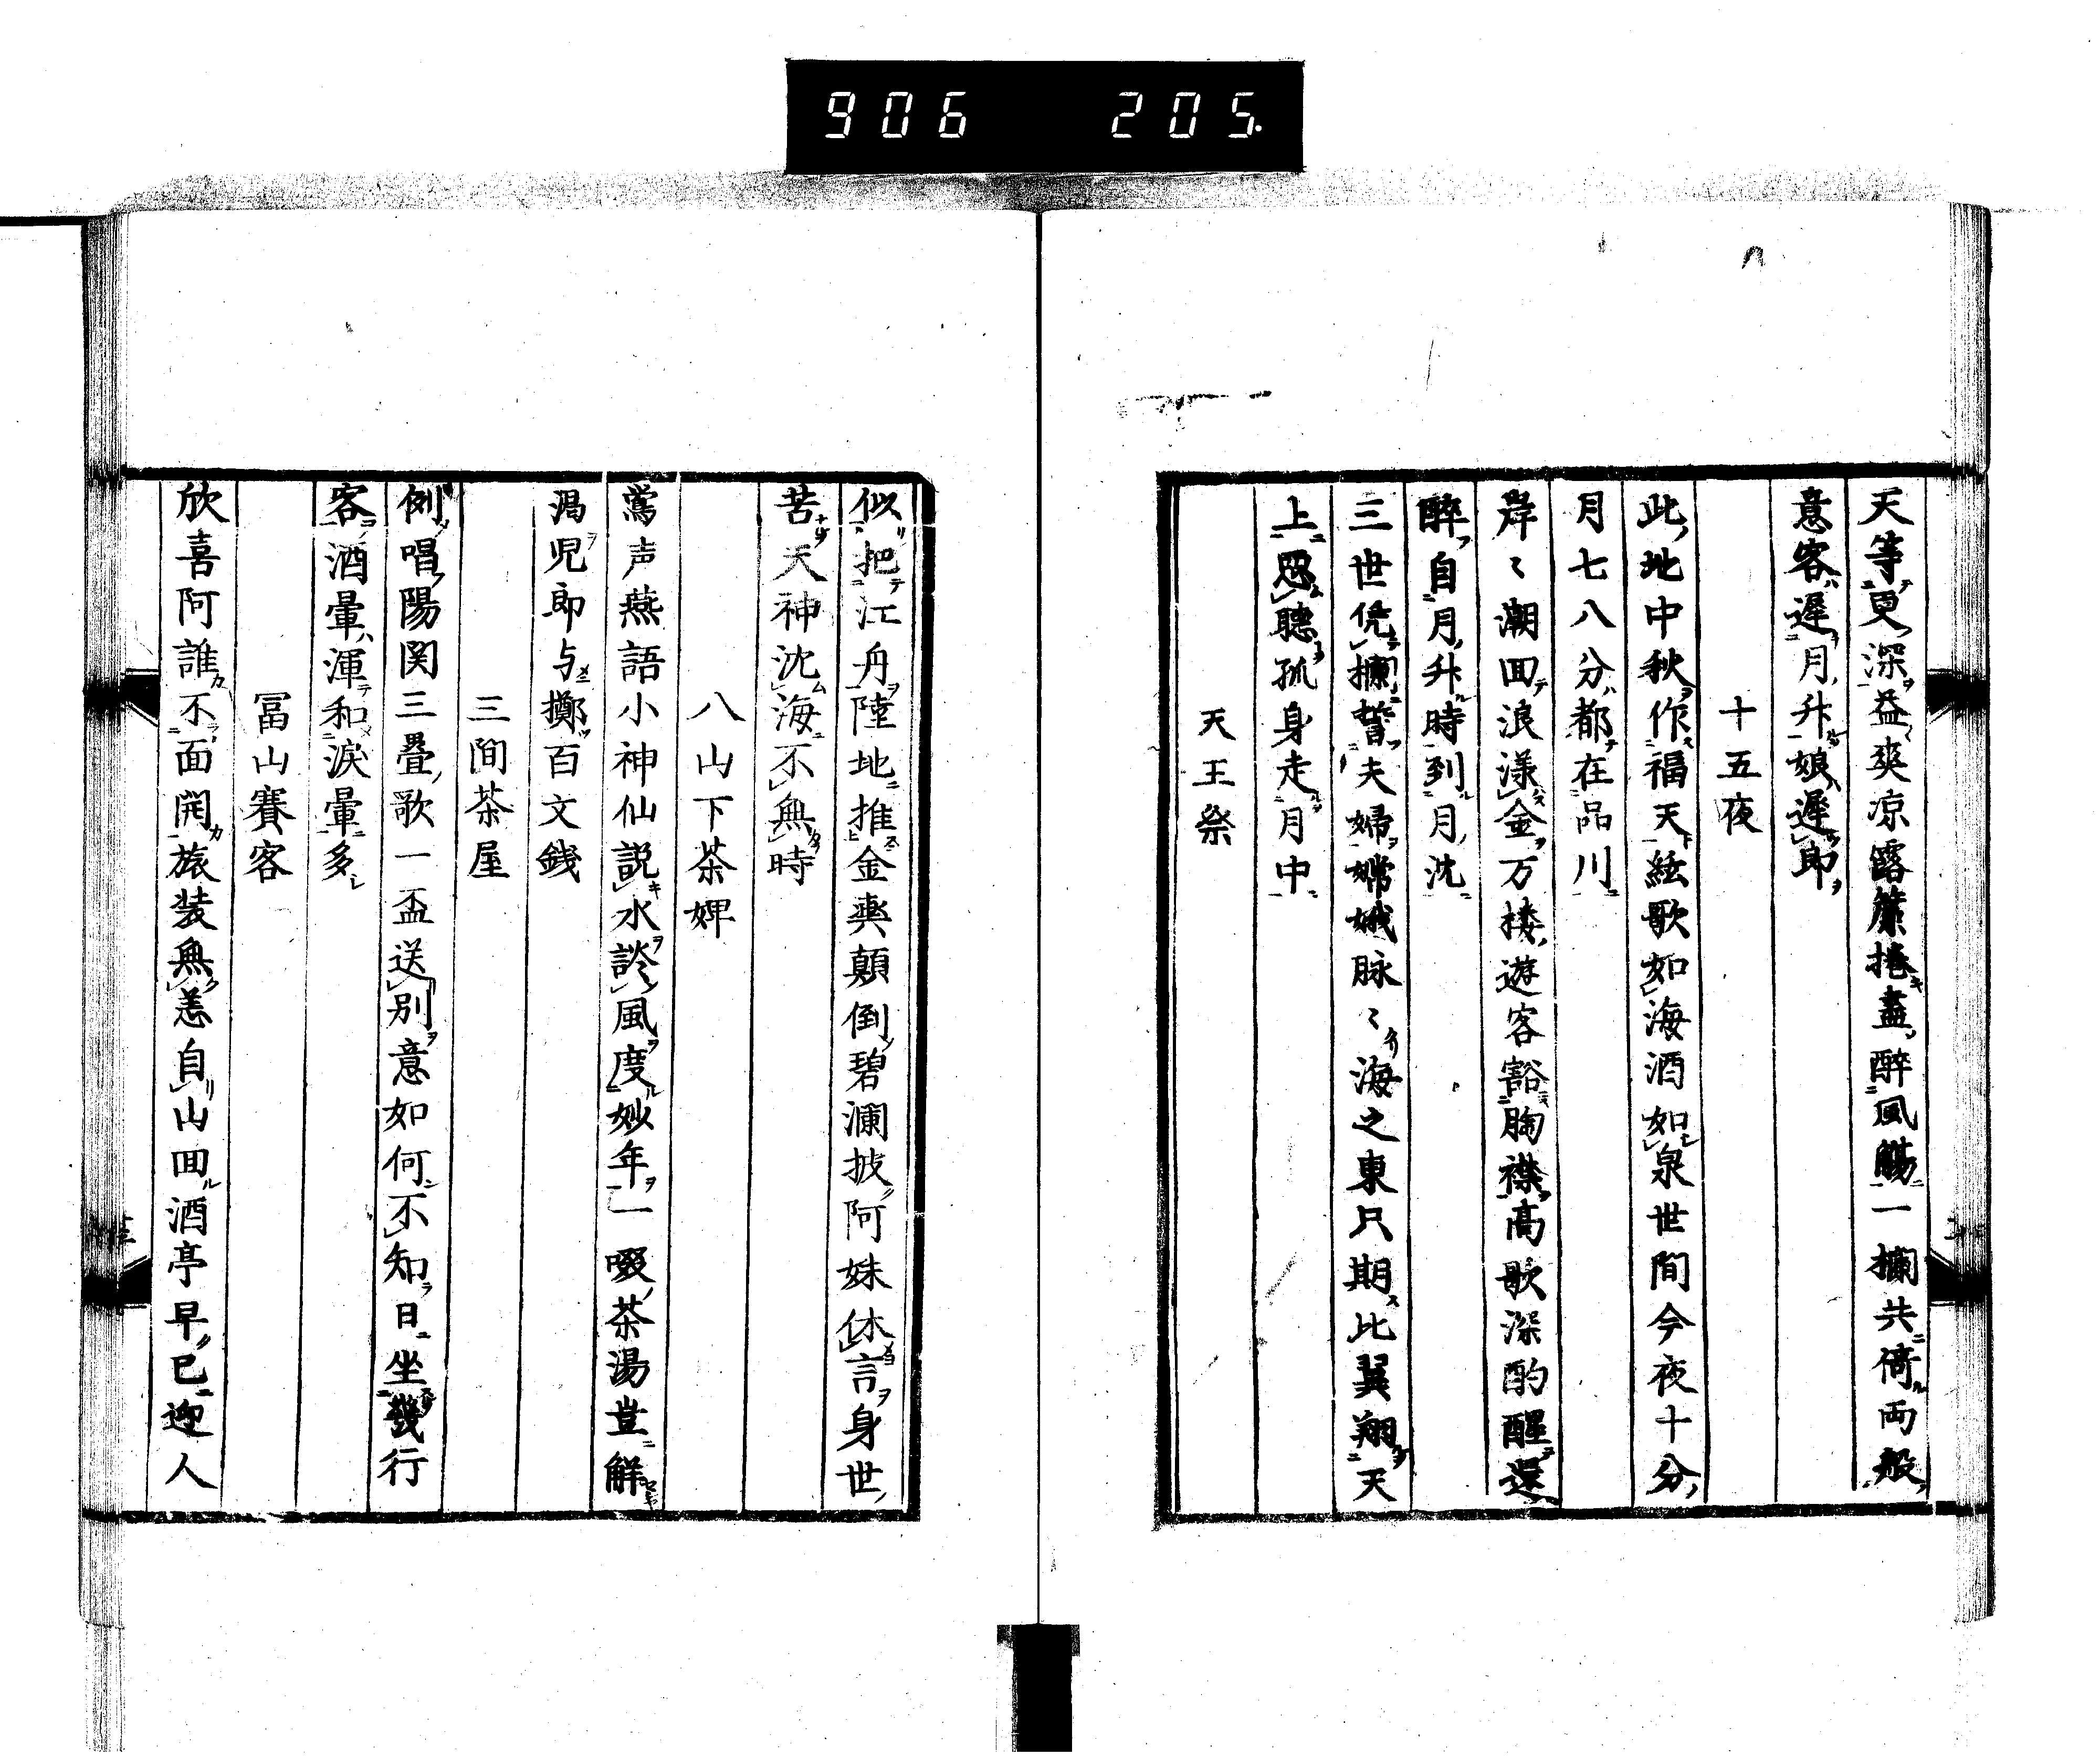 906 205.
天等更深益爽凉露簾捲盡醉風觴一欄共倚両般
意客遅月升娘遅郎
十五夜
此地中秋作福天絃歌如海酒如泉世間今夜十分
月七八分都在品川
岸〻潮回浪漾金万楼遊客豁胸襟高歌深酌醒還
酔自月升時到月沈
三世凭欄誓夫婦嫦娥脉〻海之東只期比翼翔天
上忍聴孤身走月中
天王祭
似把江舟陸地推金輿顛倒碧瀾披阿妹休言身世
苦天神沈海不無時
八山下茶婢
鶯声燕語小神仙説水談風度妙年一啜茶湯豈解
渇児郎与擲百文銭
三間茶屋
例唱陽関三畳歌一盃送別意如何不知日坐幾行
客酒暈渾和涙暈多
冨山賽客
欣喜阿誰不面開旅装無恙自山回酒亭早已迎人